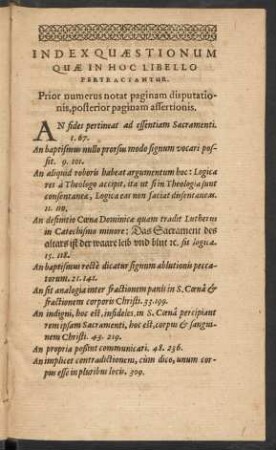 INDEX QUÆSTIONUM
QUÆ IN HOC LIBELLO
PERTRACTANTUR.
Prior numerus notat paginam disputatio-
nis, posterior paginam assertionis.
AN fides pertineat ad essentiam Sacramenti.
1. 67.
An baptismus nullo prorsus modo signum vocari pos-
sit. 9. 101.
An aliquid roboris habeat argumentum hoc: Logica
res à Theologo accipit, ita ut si in Theologia sunt
consentanea, Logica ea non faciat dissentanea.
11. 110.
An definitio Cœnæ Dominicæ quam tradit Lutherus
in Catechismo minore: Das Sacrament des
altars ist der waare leib vnd blut ꝛc. sit logica.
15. 118.
An baptismus rectè dicatur signum ablutionis pecca-
torum. 21. 141.
An sit analogia inter fractionem panis in S. Cœnâ &
fractionem corporis Christi. 33. 199.
An indigni, hoc est, infideles, in S. Cœnâ percipiant
rem ipsam Sacramenti, hoc est, corpus & sangui-
nem Christi. 43. 219.
An propria possint communicari. 48. 236.
An implicet contradictionem, cùm dico, unum cor-
pus esse in pluribus locis. 309.